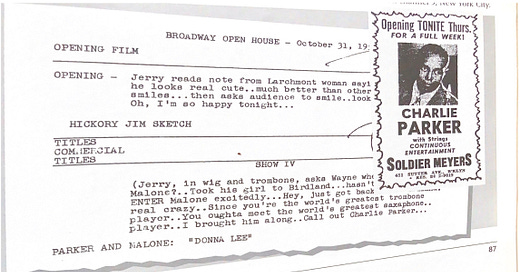 Number 3, New York City.
BROADWAY OPEN HOUSE - October 31, 19
OPENING FILM
OPENING - Jerry reads note from Larchmont woman sayi
he looks real cute..much better than other
smiles...then asks audience to smile..look
Oh, I'm so happy tonight...
HICKORY JIM SKETCH
TITLES
COMMERCIAL
TITLES
SHOW IV
(Jerry, in wig and trombone, asks Wayne whe
Malone?..Took his girl to Birdland...hasn't
ENTER Malone excitedly...Hey, just got back
real crazy..Since you're the world's greatest trombone
player..You oughta meet the world's greatest saxaphone..
player..I brought him along..Call out Charlie Parker...
PARKER AND MALONE: "DONNA LEE"
Opening TONITE Thurs.
FOR A FULL WEEK!
CHARLIE
PARKER
with Strings
CONTINUOUS
ENTERTAINMENT
SOLDIER MEYERS
87